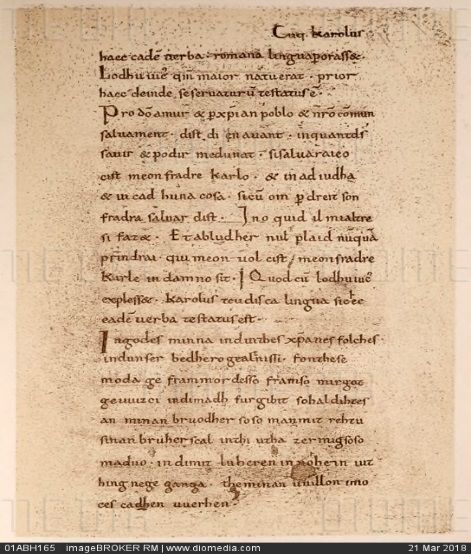 Cuq; karolus
haec eadē uerba romana lingua porasset.
Lodhuuuic⁹ qm̄ maior natu erat. prior
haec deinde se seruaturū testatus ē.
Pro dō amur & p xp̄ian poblo & nr̄o cōmun
saluament. dist di en auant. inquantd̄s
sauir & podir medunat. sisaluaraieo
cist meon fradre karlo. & in ad iudha
& in cad huna cosa. sicū om p dreit son
fradra saluar dist. Ino quid il mialtre
si faz&. Et abludher nul plaid nūquā
prindrai. qui meon uol cist meonfradre
karle in damno sit. Quod cū lodhuuic⁹
explesset. karolus teudisca lingua sic
eadē uerba testatus est.
Ingodes minna indinthes xp̄anes folches
indunser bedhero gealtnissi. fonthese
moda ge frammordesso framso mirgot
geuuizci indimadh furgibit sohaldihtes
an minan bruodher soso manmit rehtu
sinan bruher scal inthi utha zermigsoso
maduo. indimit luheren in nohein iut
hing nege ganga. theminan uuillon imo
ces cadhen uuerhen.
01ABH165 imageBROKER RM | www.diomedia.com 21 Mar 2018